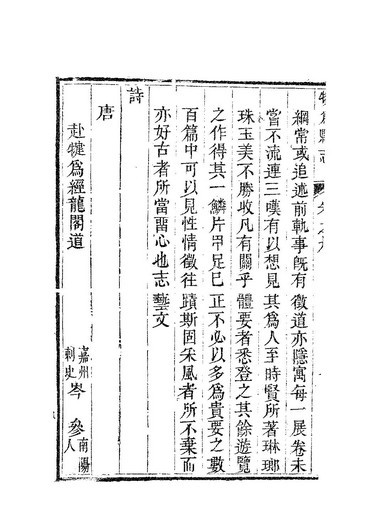 綱常或追述前軌事旣有徵道亦隱寓每一展卷未
嘗不流連三嘆有以想見其爲人至時賢所著琳瑯
珠玉美不勝收凡有關乎體要者悉登之其餘遊覽
之作得其一鱗片甲足已正不必以多爲貴要之數
百篇中可以見性情徵往蹟斯固采風者所不棄而
亦好古者所當畱心也志藝文
詩
唐
赴犍爲經龍閣道 嘉州刺史岑參南陽人